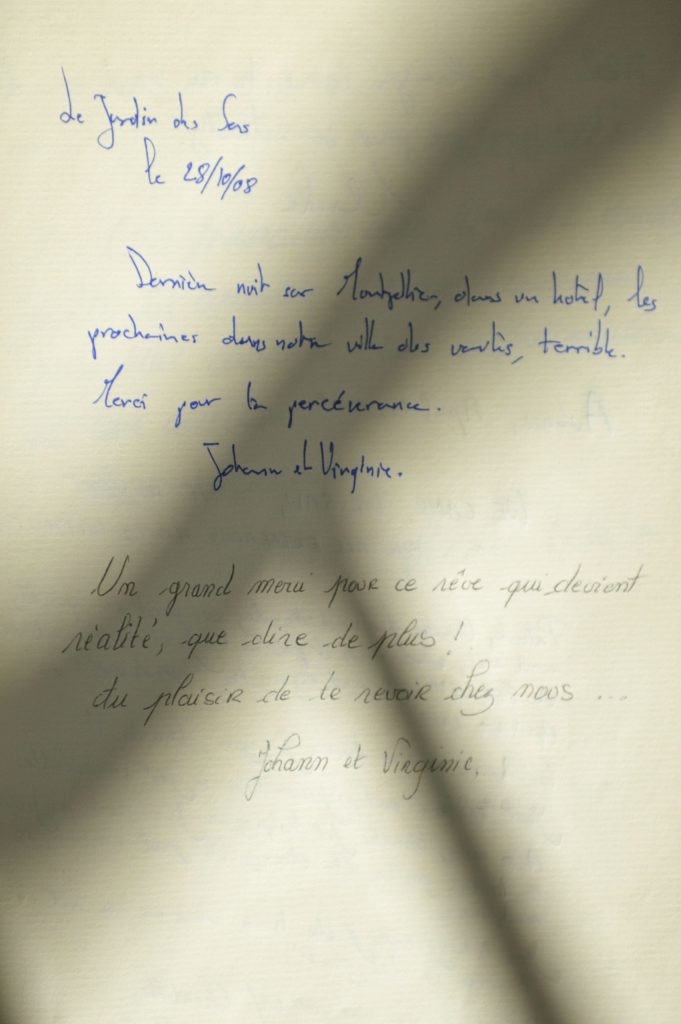 Le Jardin des Sens
le 28/10/08
Dernière nuit sur Montpellier, dans un hôtel, les
prochaines dans notre ville des vertes, terrible.
Merci pour la percéverance.
Johann et Virginie.
Un grand merci pour ce rêve qui devient
réalité, que dire de plus !
Au plaisir de te revoir chez nous ...
Johann et Virginie.